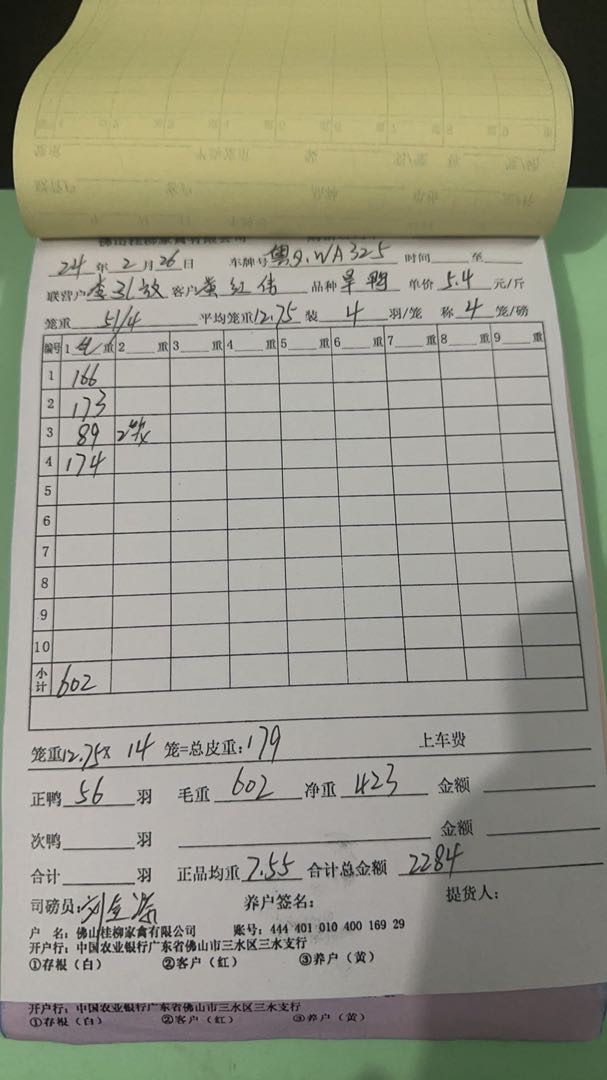 佛山桂柳家禽有限公司
24 年 2 月 26 日 车牌号 粤J.WA325 时间 至
联营户 李引放 客户 黄红伟 品种 旱鸭 单价 5.4 元/斤
笼重 51/4 平均笼重 12.75 装 4 羽/笼 称 4 笼/磅
编号 1 毛 重 2 重 3 重 4 重 5 重 6 重 7 重 8 重 9 重
1 166
2 173
3 89 2
4 174
5
6
7
8
9
10
小计 602
笼重12.75X 14 笼=总皮重: 179 上车费
正鸭 56 羽 毛重 602 净重 423 金额
次鸭 羽 金额
合计 羽 正品均重 7.55 合计总金额 2284
司磅员: 养户签名: 提货人:
户 名: 佛山桂柳家禽有限公司 账号: 444 401 010 400 169 29
开户行: 中国农业银行广东省佛山市三水区三水支行
①存根（白） ②客户（红） ③养户（黄）
开户行: 中国农业银行广东省佛山市三水区三水支行
①存根（白） ②客户（红） ③养户（黄）